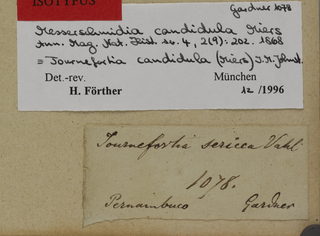 ISOTYPUS
Gardner 1078
Messerschmidia candidula Miers
Ann. Mag. Nat. Hist. se. 4, 2(9): 202. 1868
= Tournefortia candidula (Miers) I.M. Johnst.
Det.-rev. München
H. Förther 12 /1996
Tournefortia sericea Vahl
1078.
Pernambuco Gardner